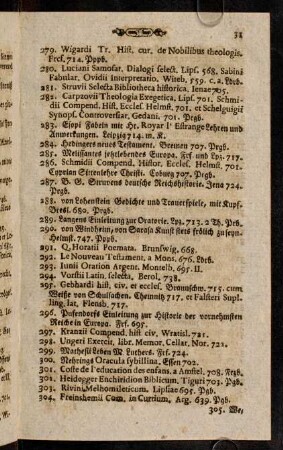 31
279. Wigardi Tr. Hist. cur. de Nobilibus theologis.
Frcf. 714. Ppyb.
280. Luciani Samosat. Dialogi select. Lips. 568. Sabini
Fabular. Ovidii Interpretatio, Witeb. 559. c. a. Ldrb.
281. Struvii Selecta Bibliotheca historica. Ienae 705.
282. Carpzovii Theologia Exegetica, Lips. 701. Schmi-
dii Compend. Hist. Eccles. Helmst, 701. et Schelguigii
Synopf. Controversiar, Gedani, 701. Prgb.
283. Esopi Fabeln mit Hr. Royar l' Estrange Lehren und
Anmerkungen. Leipzig 714. m. K.
284. Hedingers neues Testament. Bremen 707. Prgb.
285. Melissantes jeztlebendes Europa. Frf. und Lpz. 717.
286. Schmidii Compend. Histor. Eccles. Helmst, 701.
Cyprian Sittenlehre Christi. Coburg 707. Prgb.
287. B. G. Struvens deutsche Reichshistorie. Jena 724.
Prgb.
288. von Lohenstein Gedichte und Trauerspiele, mit Kupf.
Bresl. 680. Prgb.
289. Langens Einleitung zur Oratorie. Lpz. 713. 2 Th. Prb.
290. von Windheim, von Sarasa Kunst stets frölich zu seyn.
Helmst. 747. Ppyb.
291. Q. Horatii Poemata. Brunswig, 668.
292. Le Nouveau Testament, a Mons, 676. Ldrb.
293. Iunii Oration Argent. Montelb, 695. II.
294. Vorstii Latin. selecta, Berol, 738.
295. Gebhardi hist, civ. et eccles. Braunschw. 715. cum
Weise von Schulsachen. Chemnitz 717. et Falsteri Supl.
ling. lat, Flensb, 717.
296. Pufendorfs Einleitung zur Historie der vornehmsten
Reiche in Europa. Frf. 695.
297. Kranzii Compend. hist civ, Wratisl, 721.
298. Ungeri Exercit, libr. Memor. Cellar, Nor. 721.
299. Mathesii Leben M. Luthers. Frf. 724.
300. Nehrings Oracula sybillina, Essen 702.
301. Coste de l'education des enfans, a Amstel, 708. Nrzb.
302. Heidegger Enchiridion Biblicum, Tiguri 703. Pgb.
303. Rivini Melhomileticum. Lipsiae 695. Pgb.
304. Freinshemii Com. in Curtium, Arg, 639. Pgb.
305. We,